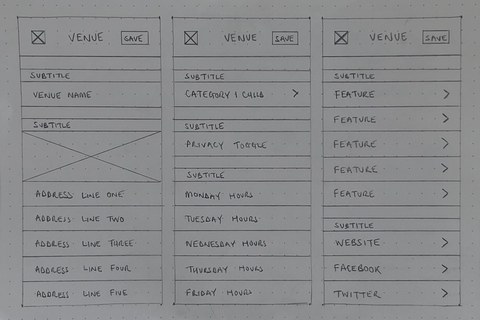 VENUE SAVE
SUBTITLE
VENUE NAME
SUBTITLE
ADDRESS LINE ONE
ADDRESS LINE TWO
ADDRESS LINE THREE
ADDRESS LINE FOUR
ADDRESS LINE FIVE
VENUE SAVE
SUBTITLE
CATEGORY | CHILD
SUBTITLE
PRIVACY TOGGLE
SUBTITLE
MONDAY HOURS
TUESDAY HOURS
WEDNESDAY HOURS
THURSDAY HOURS
FRIDAY HOURS
VENUE SAVE
SUBTITLE
FEATURE
FEATURE
FEATURE
FEATURE
FEATURE
SUBTITLE
WEBSITE
FACEBOOK
TWITTER